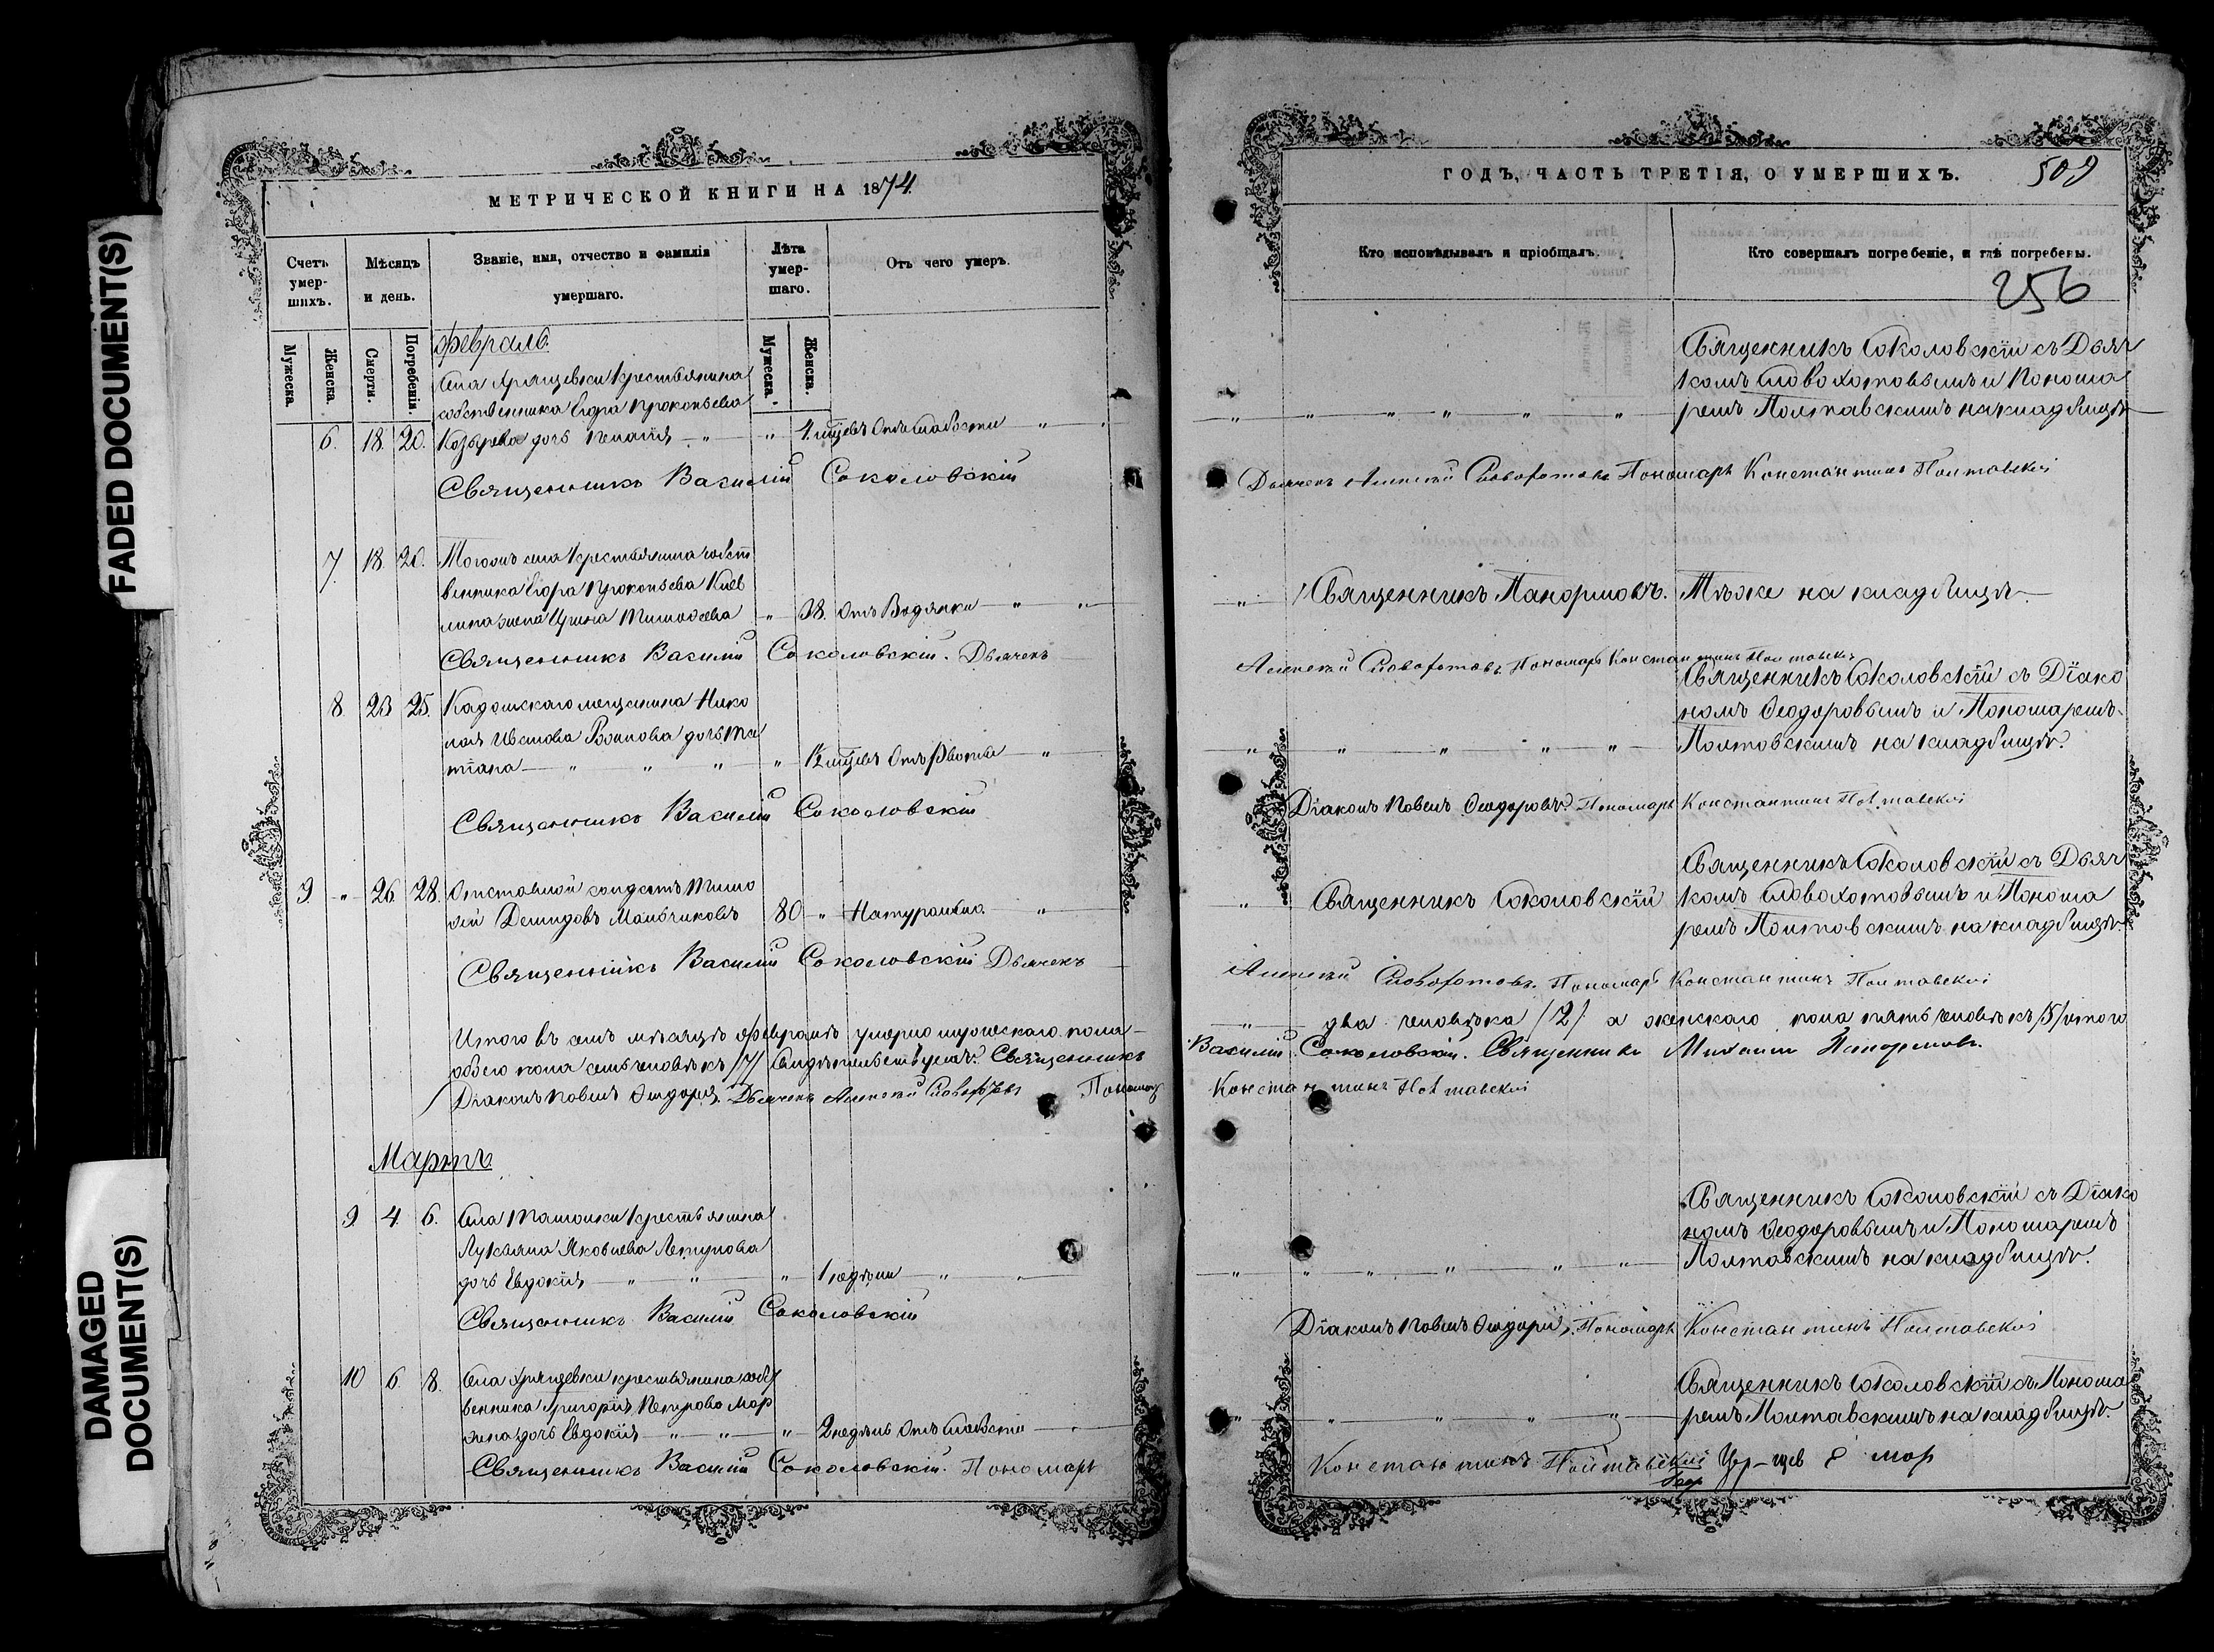 FADED DOCUMENT(S)
DAMAGED
DOCUMENT(S)
МЕТРИЧЕСКОЙ КНИГИ НА 1874
Счетъ умер-шихъ.
Мѣсяцъ и день.
Званіе, имя, отчество и фамилія умершаго.
Лѣта умер-шаго.
Отъ чего умеръ.
Мужеска.
Женска.
Смерти.
Погребенія.
Мужеска.
Женска.
февраль.
Села Хрящевки крестьянина
собственника Егора Прокопьева
6. 18. 20. Козырева дочь Пелагія — „ — „ 4 мѣсцевъ Отъ слабости „
Священникъ Василій Соколовскій
7. 18. 20. Того жъ села крестьянина собст
венника Егора Прокопьева
жена Ирина Тимофеева „ 38. Отъ Водянки „ „
Священникъ Василій Соколовскій. Дьячекъ
8. 23 25. Кадошскаго мещанина Нико
лая дочь Та
тіана „ „ „ „ 12 мѣсцевъ Отъ Рвоты „
Священникъ Василій Соколовскій
9. „ 26 28. Отставной солдатъ Тимо
фей Демидовъ Мальчиковъ 80 „ Натурально. „
Священникъ Василій Соколовскій Дьячекъ
Итого въ семъ мѣсяцѣ февралѣ умерло мужескаго пола
обоего пола семь человѣкъ /7/ Свидѣтельствуемъ: Священникъ
Діаконъ Павелъ Дьячекъ Алексѣй Словохотовъ Пономарь
Мартъ
9. 4. 6. Села Ташолки крестьянина
Лукьяна Яковлева Летунова
дочь Евдокія „ „ „ 1 недѣли „ „
Священникъ Василій Соколовскій
10 6. 8. Села Хрящевки крестьянина собст
венника Григорія Петрова
дочь Евдокія „ „ „ 2 недѣль Отъ слабости
Священникъ Василій Соколовскій. Пономарь
ГОДЪ, ЧАСТЬ ТРЕТІЯ, О УМЕРШИХЪ.
509
Кто исповѣдывалъ и пріобщалъ.
Кто совершалъ погребеніе, и гдѣ погребены.
256
Священникъ Соколовскій съ Дьяч
комъ Словохотовымъ и Понома
ремъ Полтавскимъ на кладбищѣ
Дьячекъ Алексѣй Словохотовъ Пономарь Константинъ Полтавскій
Священникъ Панормовъ. Тѣже на кладбищѣ
Алексѣй Словохотовъ. Пономарь Константинъ Полтавскій
Священникъ Соколовскій съ Діако
номъ Ѳеодоровымъ и Пономаремъ
Полтавскимъ на кладбищѣ.
Діаконъ Павелъ Ѳеодоровъ. Пономарь Константинъ Полтавскій
Священникъ Соколовскій съ Дьяч
Священникъ Соколовскій комъ Словохотовымъ и Понома
ремъ Полтавскимъ на кладбищѣ.
Алексѣй Словохотовъ. Пономарь Константинъ Полтавскій
два человѣка /2/ а женскаго пола пять человѣкъ /5/ итого
Василій Соколовскій. Священникъ Михаилъ Панормовъ.
Константинъ Полтавскій
Священникъ Соколовскій съ Діако
номъ Ѳеодоровымъ и Пономаремъ
Полтавскимъ на кладбищѣ.
Діаконъ Павелъ Пономарь Константинъ Полтавскій
Священникъ Соколовскій съ Понома
ремъ Полтавскимъ на кладбищѣ.
Константинъ Полтавскій